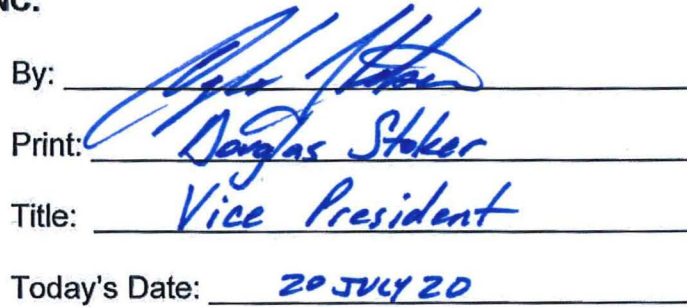 NC.
By:
Print: Douglas Stoker
Title: Vice President
Today's Date: 20 JULY 20